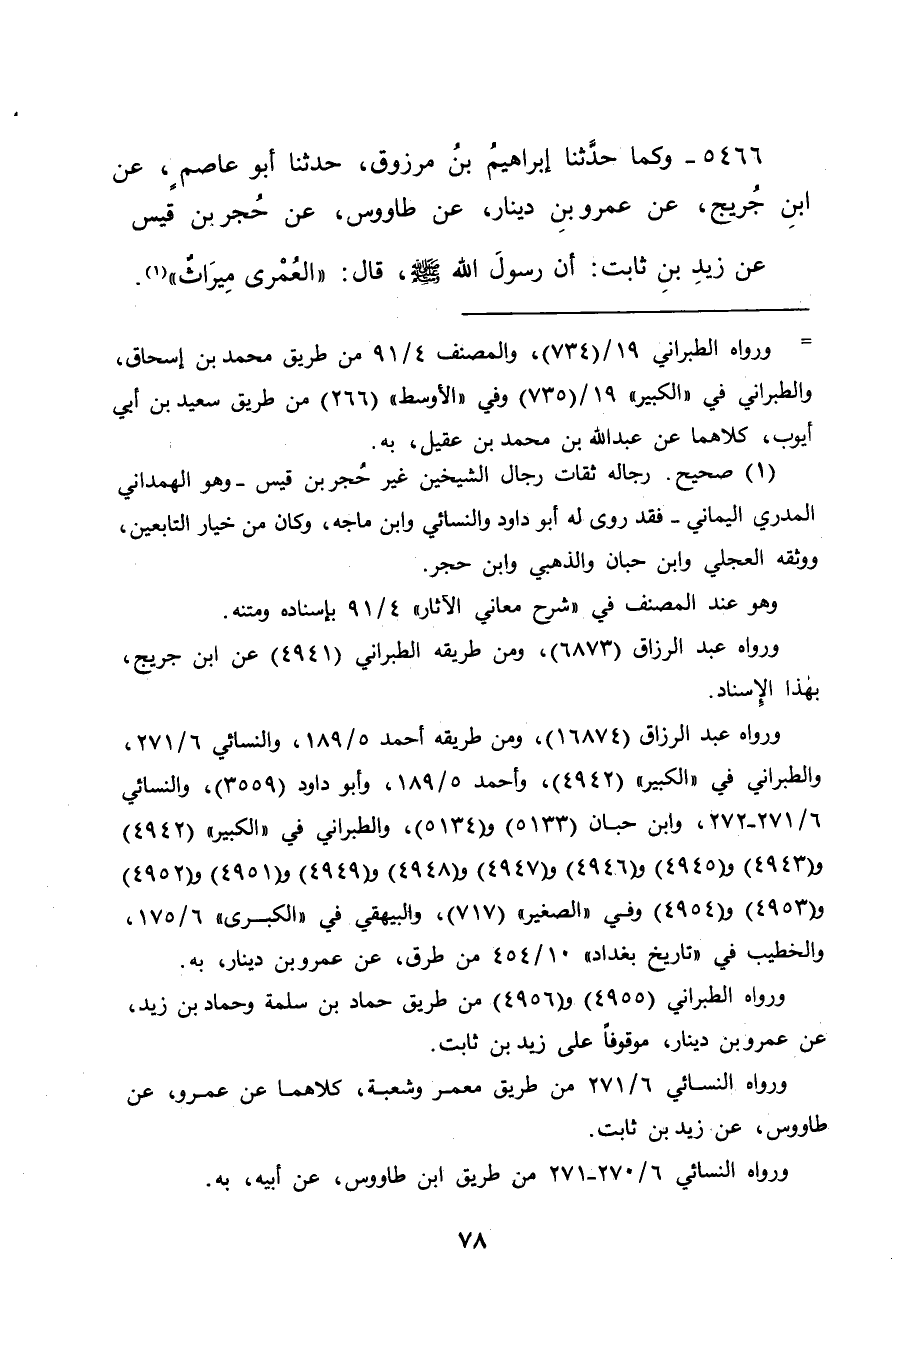 ٥٤٦٦ ـ وكما حدَّثنا إبراهيمُ بنُ مرزوق، حدثنا أبو عاصمٍ، عن
ابنِ جُريج، عن عمرو بنِ دينار، عن طاووس، عن حُجر بن قيس
عن زيدِ بنِ ثابت: أن رسولَ الله ﷺ، قال: «العُمْرى مِيرَاثٌ»(١).
= ورواه الطبراني ١٩/(٧٣٤)، والمصنف ٩١/٤ من طريق محمد بن إسحاق،
والطبراني في «الكبير» ١٩/(٧٣٥) وفي «الأوسط» (٢٦٦) من طريق سعيد بن أبي
أيوب، كلاهما عن عبدالله بن محمد بن عقيل، به.
(١) صحيح. رجاله ثقات رجال الشيخين غير حُجر بن قيس ـ وهو الهمداني
المدري اليماني ـ فقد روى له أبو داود والنسائي وابن ماجه، وكان من خيار التابعين،
ووثقه العجلي وابن حبان والذهبي وابن حجر.
وهو عند المصنف في «شرح معاني الآثار» ٩١/٤ بإسناده ومتنه.
ورواه عبد الرزاق (٦٨٧٣)، ومن طريقه الطبراني (٤٩٤١) عن ابن جريج،
بهٰذا الإِسناد.
ورواه عبد الرزاق (١٦٨٧٤)، ومن طريقه أحمد ١٨٩/٥، والنسائي ٢٧١/٦،
والطبراني في «الكبير» (٤٩٤٢)، وأحمد ١٨٩/٥، وأبو داود (٣٥٥٩)، والنسائي
٢٧١/٦-٢٧٢، وابن حبان (٥١٣٣) و(٥١٣٤)، والطبراني في «الكبير» (٤٩٤٢)
و(٤٩٤٣) و(٤٩٤٥) و(٤٩٤٦) و(٤٩٤٧) و(٤٩٤٨) و(٤٩٤٩) و(٤٩٥١) و(٤٩٥٢)
و(٤٩٥٣) و(٤٩٥٤) وفي «الصغير» (٧١٧)، والبيهقي في «الكبرى» ١٧٥/٦،
والخطيب في «تاريخ بغداد» ٤٥٤/١٠ من طرق، عن عمرو بن دينار، به.
ورواه الطبراني (٤٩٥٥) و(٤٩٥٦) من طريق حماد بن سلمة وحماد بن زيد،
عن عمرو بن دينار، موقوفاً على زيد بن ثابت.
ورواه النسائي ٢٧١/٦ من طريق معمر وشعبة، كلاهما عن عمرو، عن
طاووس، عن زيد بن ثابت.
ورواه النسائي ٢٧٠/٦-٢٧١ من طريق ابن طاووس، عن أبيه، به.
٧٨